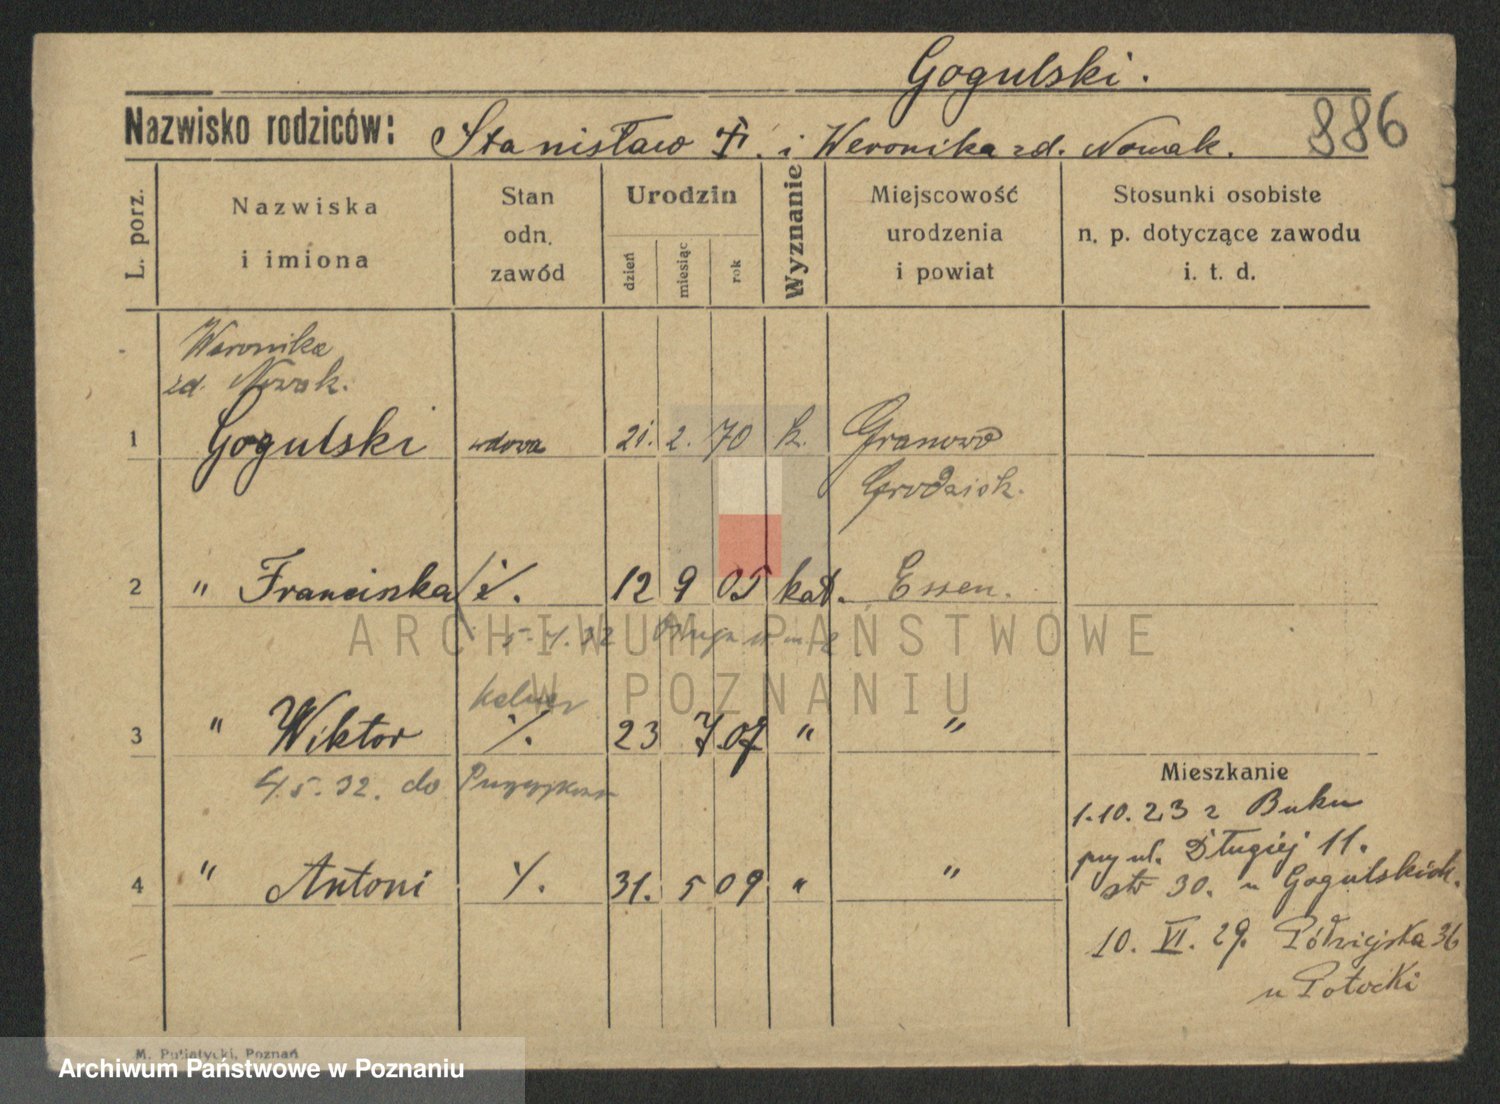 Gogulski.
Nazwisko rodziców: Stanisław †. i Weronika zd. Nowak. 886
L. porz.
Nazwiska i imiona
Stan odn. zawód
Urodzin
dzień miesiąc rok
Wyznanie
Miejscowość urodzenia i powiat
Stosunki osobiste n. p. dotyczące zawodu i. t. d.
Weronika
zd. Nowak.
1 Gogulski wdowa 21. 2. 70 k. Granowo
Grodzisk.
2 " Franciszka ż. 12 9 05 kat. Essen.
5.7.32 Długa
kelner
3 " Wiktor /. 23 7 07 " "
4.5.32. do
4 " Antoni /. 31. 5 09 " "
Mieszkanie
1.10.23 z Buku
przy ul. Długiej 11.
str 30. u Gogulskich.
10. VI. 29. Półwiejska 36
u Potocki
ARCHIWUM PAŃSTWOWE
W POZNANIU
M. Putiatycki, Poznań
Archiwum Państwowe w Poznaniu